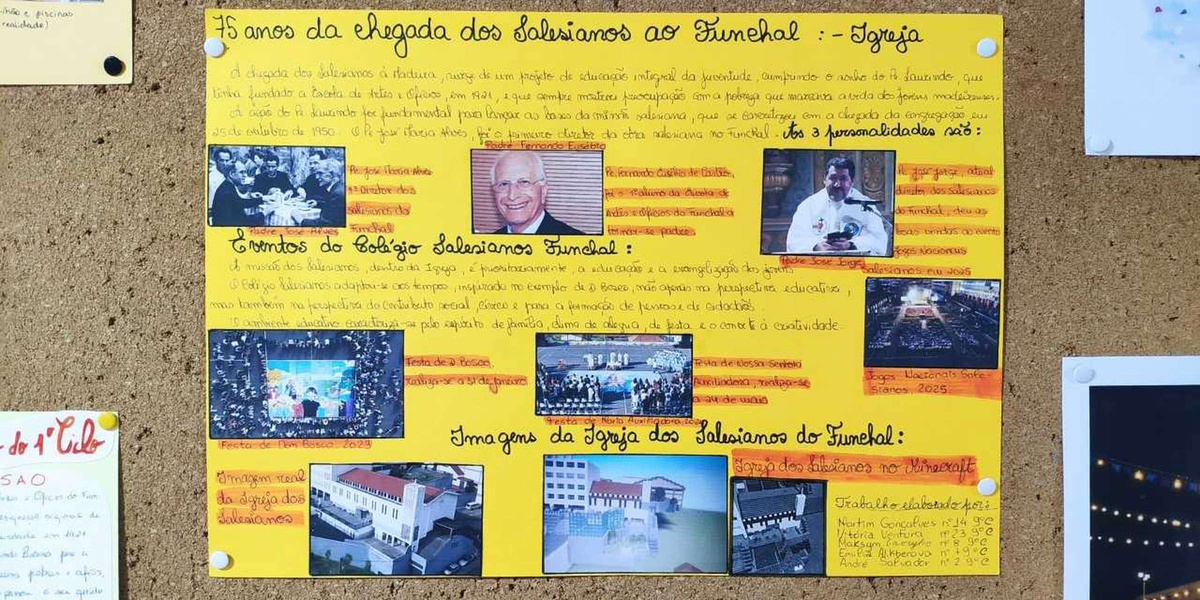 75 anos da chegada dos Salesianos ao Funchal : - Igreja
A chegada dos Salesianos à Madeira, surge de um projeto de educação integral da juventude, cumprindo o sonho do Pe Laurindo, que
tinha fundado a Escola de Artes e Ofícios, em 1921, e que sempre mostrou preocupação com a pobreza que marcava a vida dos jovens madeirenses.
A ação do Pe Laurindo foi fundamental para lançar as bases da missão salesiana, que se concretizou com a chegada da congregação, em
25 de outubro de 1950. O Pe José Maria Alves, foi o primeiro diretor da obra salesiana no Funchal. As 3 personalidades são:
Padre Fernando Eusébio
Pe. José Maria Alves
1º Diretor dos
Salesianos do
Funchal
Padre José Alves
Pe. Fernando Eusébio de
foi o 1º aluno da Escola de
Artes e Ofícios do Funchal a
tornar-se padre.
Pe. José Jorge, atual
diretor dos Salesianos
do Funchal, deu as
boas vindas ao evento
Jogos Nacionais
Salesianos em 2025
Padre José Jorge
Eventos do Colégio Salesianos Funchal :
A missão dos Salesianos, dentro da Igreja, é prioritariamente, a educação e a evangelização dos jovens.
O Colégio Salesianos adaptou-se aos tempos, inspirado no exemplo de D. Bosco, não apenas na perspetiva educativa,
mas também na perspetiva do contributo social, cívico e para a formação de pessoas e de cidadãos.
O ambiente educativo caracteriza-se pelo espírito de família, clima de alegria, de festa e o convite à criatividade.
Festa de D. Bosco,
realiza-se a 31 de janeiro
Festa de Dom Bosco, 2023
Festa de Nossa Senhora
Auxiliadora, realiza-se
a 24 de maio
Festa de Maria Auxiliadora, 202
Jogos Nacionais Sale
sianos, 2025
Imagens da Igreja dos Salesianos do Funchal :
Imagem real
da Igreja dos
Salesianos
Igreja dos Salesianos no Minecraft
Trabalho elaborado por :
Martim Gonçalves nº14 9ºC
Vitória Ventura nº23 9ºC
Maksym nº 8 9ºC
Emilia nº 7 9ºC
André Salvador nº 2 9ºC
e piscinas
realidade)
do 1º Ciclo